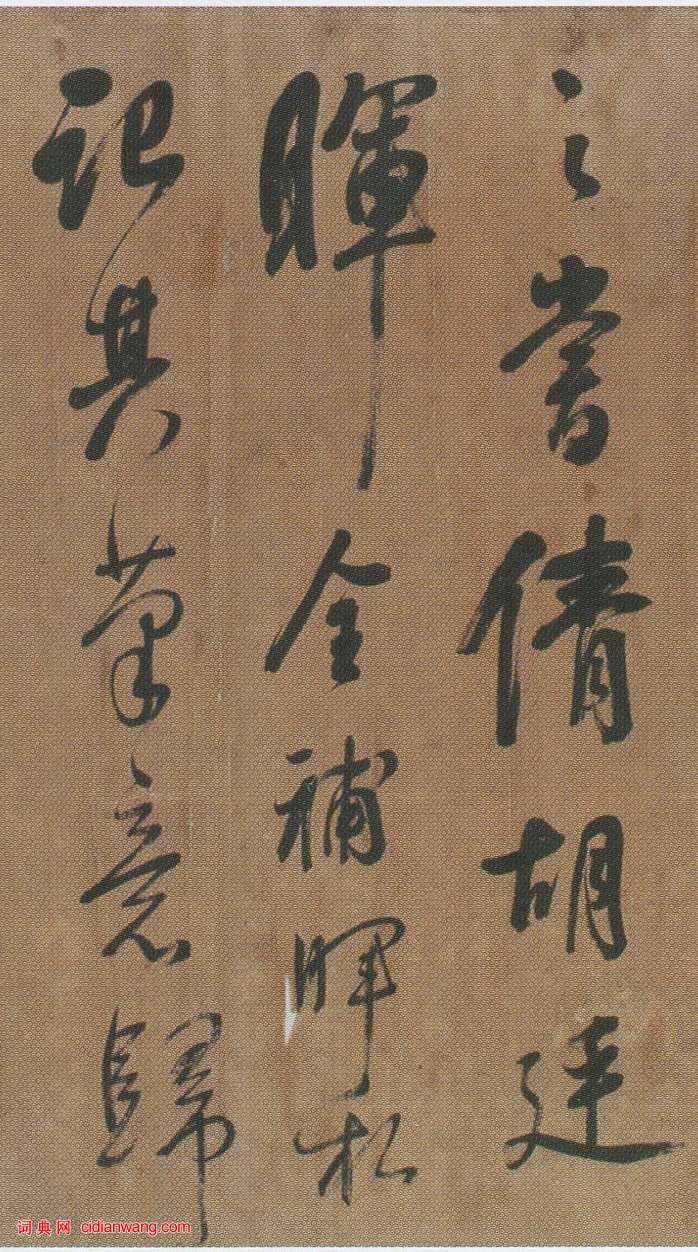 之嘗倩胡廷
暉全補暉私
記其筆意歸
词典网 cidianwang.com